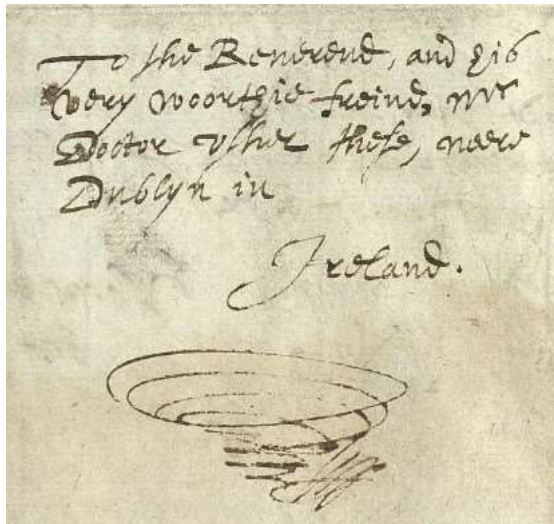 To the Reverend, and his
very woorthie freind, Mr
Doctor Vsher these, neere
Dublyn in
Ireland.